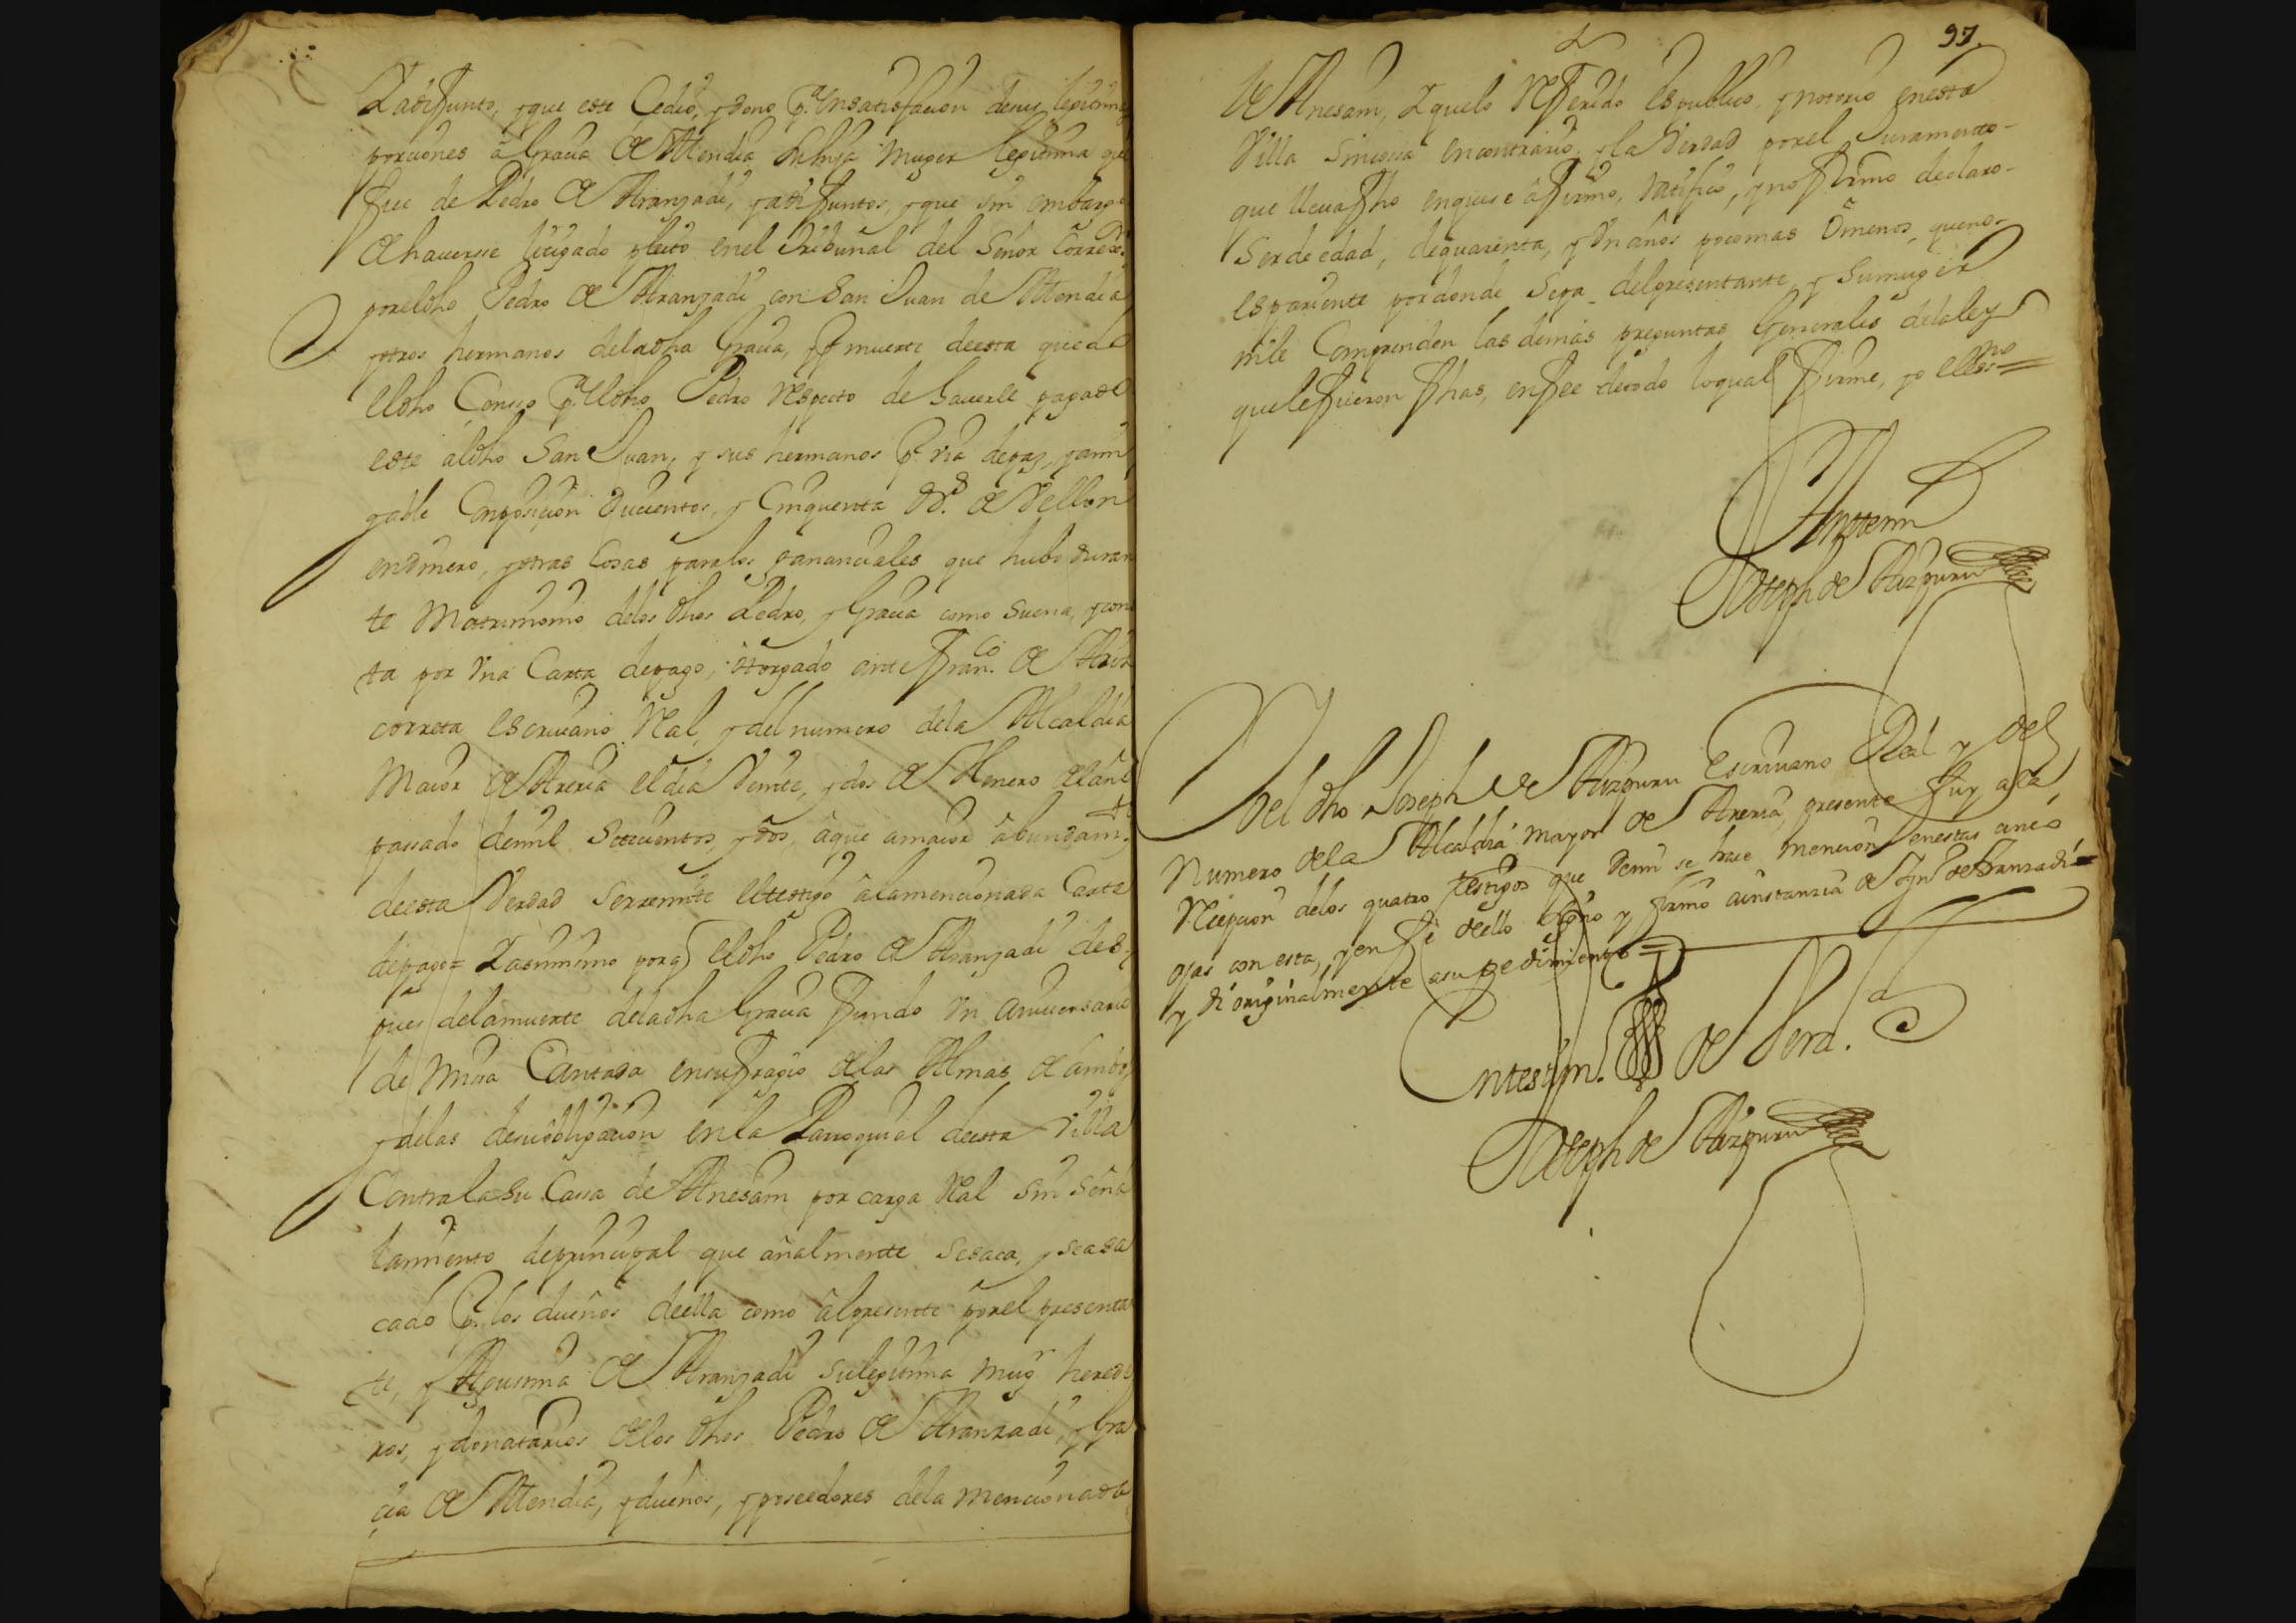 Ya difunto, y que este Cedio, y dono p.ª en satisfacion de sus legitimas
porciones â Gracia de Atendia su hija muger legitima que
fue de Pedro de Aranzadi, ya difuntos, y que sin embargo
de haverse litigado pleito en el Tribunal del Señor Corregr.
por el dho Pedro de Aranzadi con San Juan de Atendia
y otros hermanos de la dha Gracia, y p.r muerte de esta quedo
el dho p.ª el dho Pedro respecto de haverle pagado
este al dho San Juan, y sus hermanos p.r via de paz, y ami
gable Composicion Ducientos, y Cinquenta Dd.s de Vellon
en dinero, y otras Cosas para los gananciales que hubo duran
te Matrimonio de los dhos Pedro, y Gracia como suena, y cons
ta por vna Carta de pago, otorgado ante Fran.co de Ariz
correta escrivano Real, y del numero de la Alcaldia
Maior de Areria el dia Veinte, y dos de Henero del añ
passado de mil Setecientos, y dos, â que a maior âbundam.to
de esta Verdad se rremite el testigo â la mencionada Carta
de pago= Y asimismo porq el dho Pedro de Aranzadi des
pues de la muerte de la dha Gracia fundo vn aniversario
de missa Cantada en sufragio de las Almas de ambos
y de las de su obligacion en la Parroquial de esta Villa
Contra la su Cassa de Anesam por carga Real sin señá
lamiento de principal que añalmente se saca, y se a sa
cado p.r los dueños de ella como âl presente por el presentan
te, y Agustina de Aranzadi su legitima mug.r herede
ros, y donatarios de los dhos Pedro de Aranzadi, y Gra
cia de Atendia, y dueños, y poseedores de la mencionada
97.
de Anesam, Y que lo referido es publico, y notorio en esta
Villa sin cosa en contrario, y la Verdad por el Juramento
que lleva fho en que se âfirmo, ratifico, y no firmo declaro
Ser de edad, de quarenta, y vn años poco mas ô menos, que no
es pariente por donde sepa del presentante, y su muger
ni le Comprenden las demas preguntas Generales de la ley
que le fueron fhas, en fee de todo lo qual firme, yo el ess.no=
Antemi
Joseph de Aizpuru
Yo el dho Joseph de Aizpuru Escrivano Real y del
Numero de la Alcaldia mayor de Areria, presente fuy a la
Recepcion de los quatro testigos que de mi se hace mencion en estas cinco
ojas con esta, y en fe de ello signo y firmo a instanzia de Ign.o de Aranzadi=
y di originalmente a su pedimiento=
En testim.o de Verd.
Joseph de Aizpuru